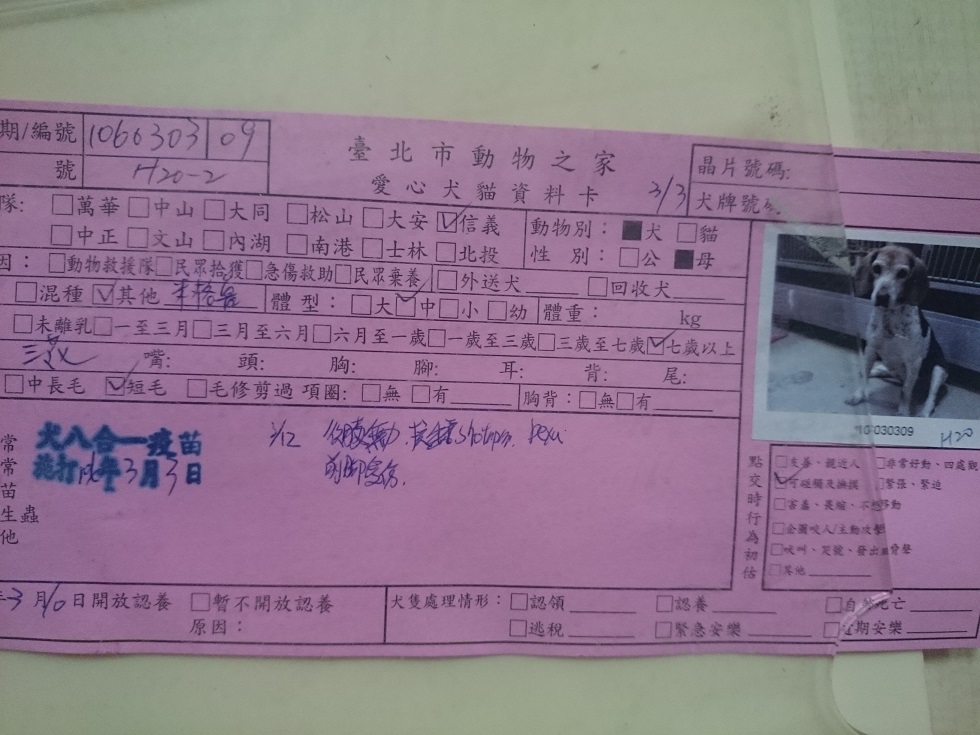 期/編號 1060303 09
臺北市動物之家
晶片號碼:
號 H20-2
愛心犬貓資料卡 3/3
犬牌號
隊: □萬華 □中山 □大同 □松山 □大安 ☑信義 動物別: ■犬 □貓
□中正 □文山 □內湖 □南港 □士林 □北投 性別: □公 ■母
因: □動物救援隊 □民眾拾獲 □急傷救助 □民眾棄養 □外送犬 □回收犬
□混種 ☑其他 米格魯 體型: □大 ☑中 □小 □幼 體重: kg
□未離乳 □一至三月 □三月至六月 □六月至一歲 □一歲至三歲 □三歲至七歲 ☑七歲以上
三花 嘴: 頭: 胸: 腳: 耳: 背: 尾:
□中長毛 ☑短毛 □毛修剪過 項圈: □無 □有 胸背: □無 □有
030309
H20
常
常
苗
生蟲
他
犬八合一疫苗
施打 年3月3日
前腳
點交時行為初估
□友善、親近人 □非常好動、四處觀
☑可碰觸及撫摸 □緊張、緊迫
□害羞、畏縮、不想移動
□會齜咬人/主動攻擊
□吠叫、哭號、發出 聲
□其他
年3月10日開放認養 □暫不開放認養
原因:
犬隻處理情形: □認領 □認養 □自然死亡
□逃脫 □緊急安樂 □近期安樂